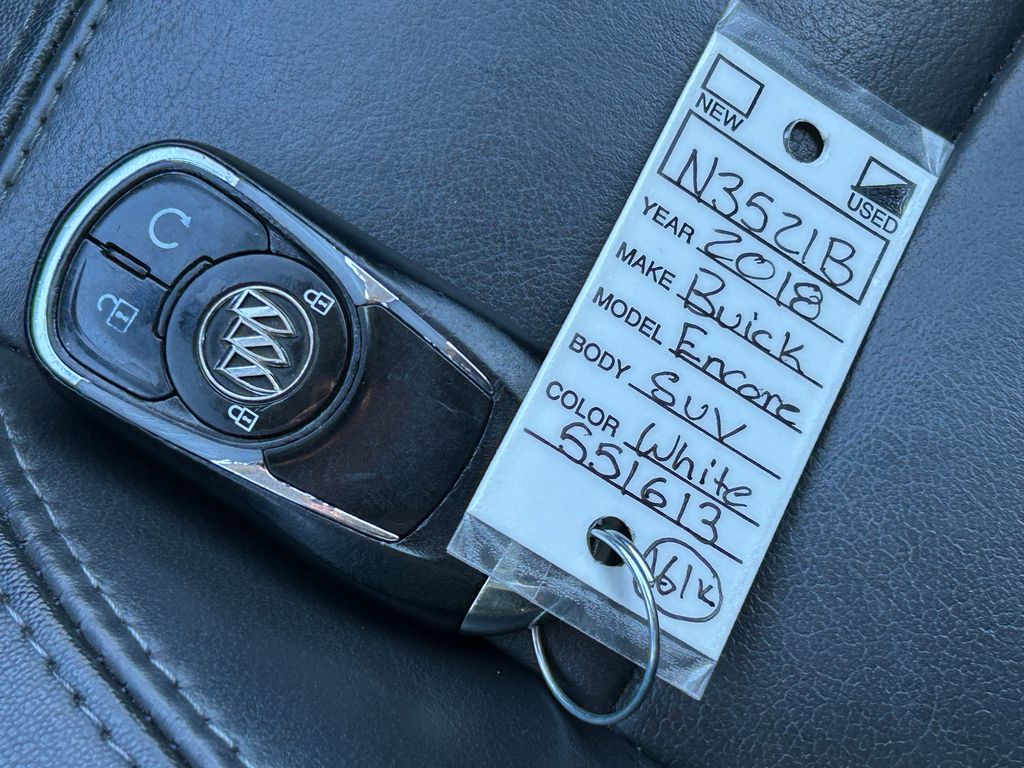 NEW
USED
N3521B
YEAR 2018
MAKE Buick
MODEL Encore
BODY SUV
COLOR White
551613
61K